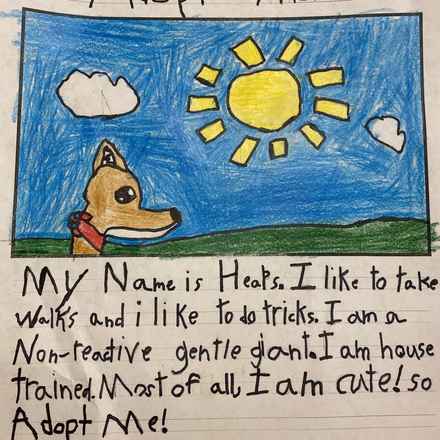 My Name is Heaps. I like to take
walks and i like to do tricks. I am a
Non-reactive gentle giant. I am house
trained. Most of all, I am cute! so
Adopt Me!